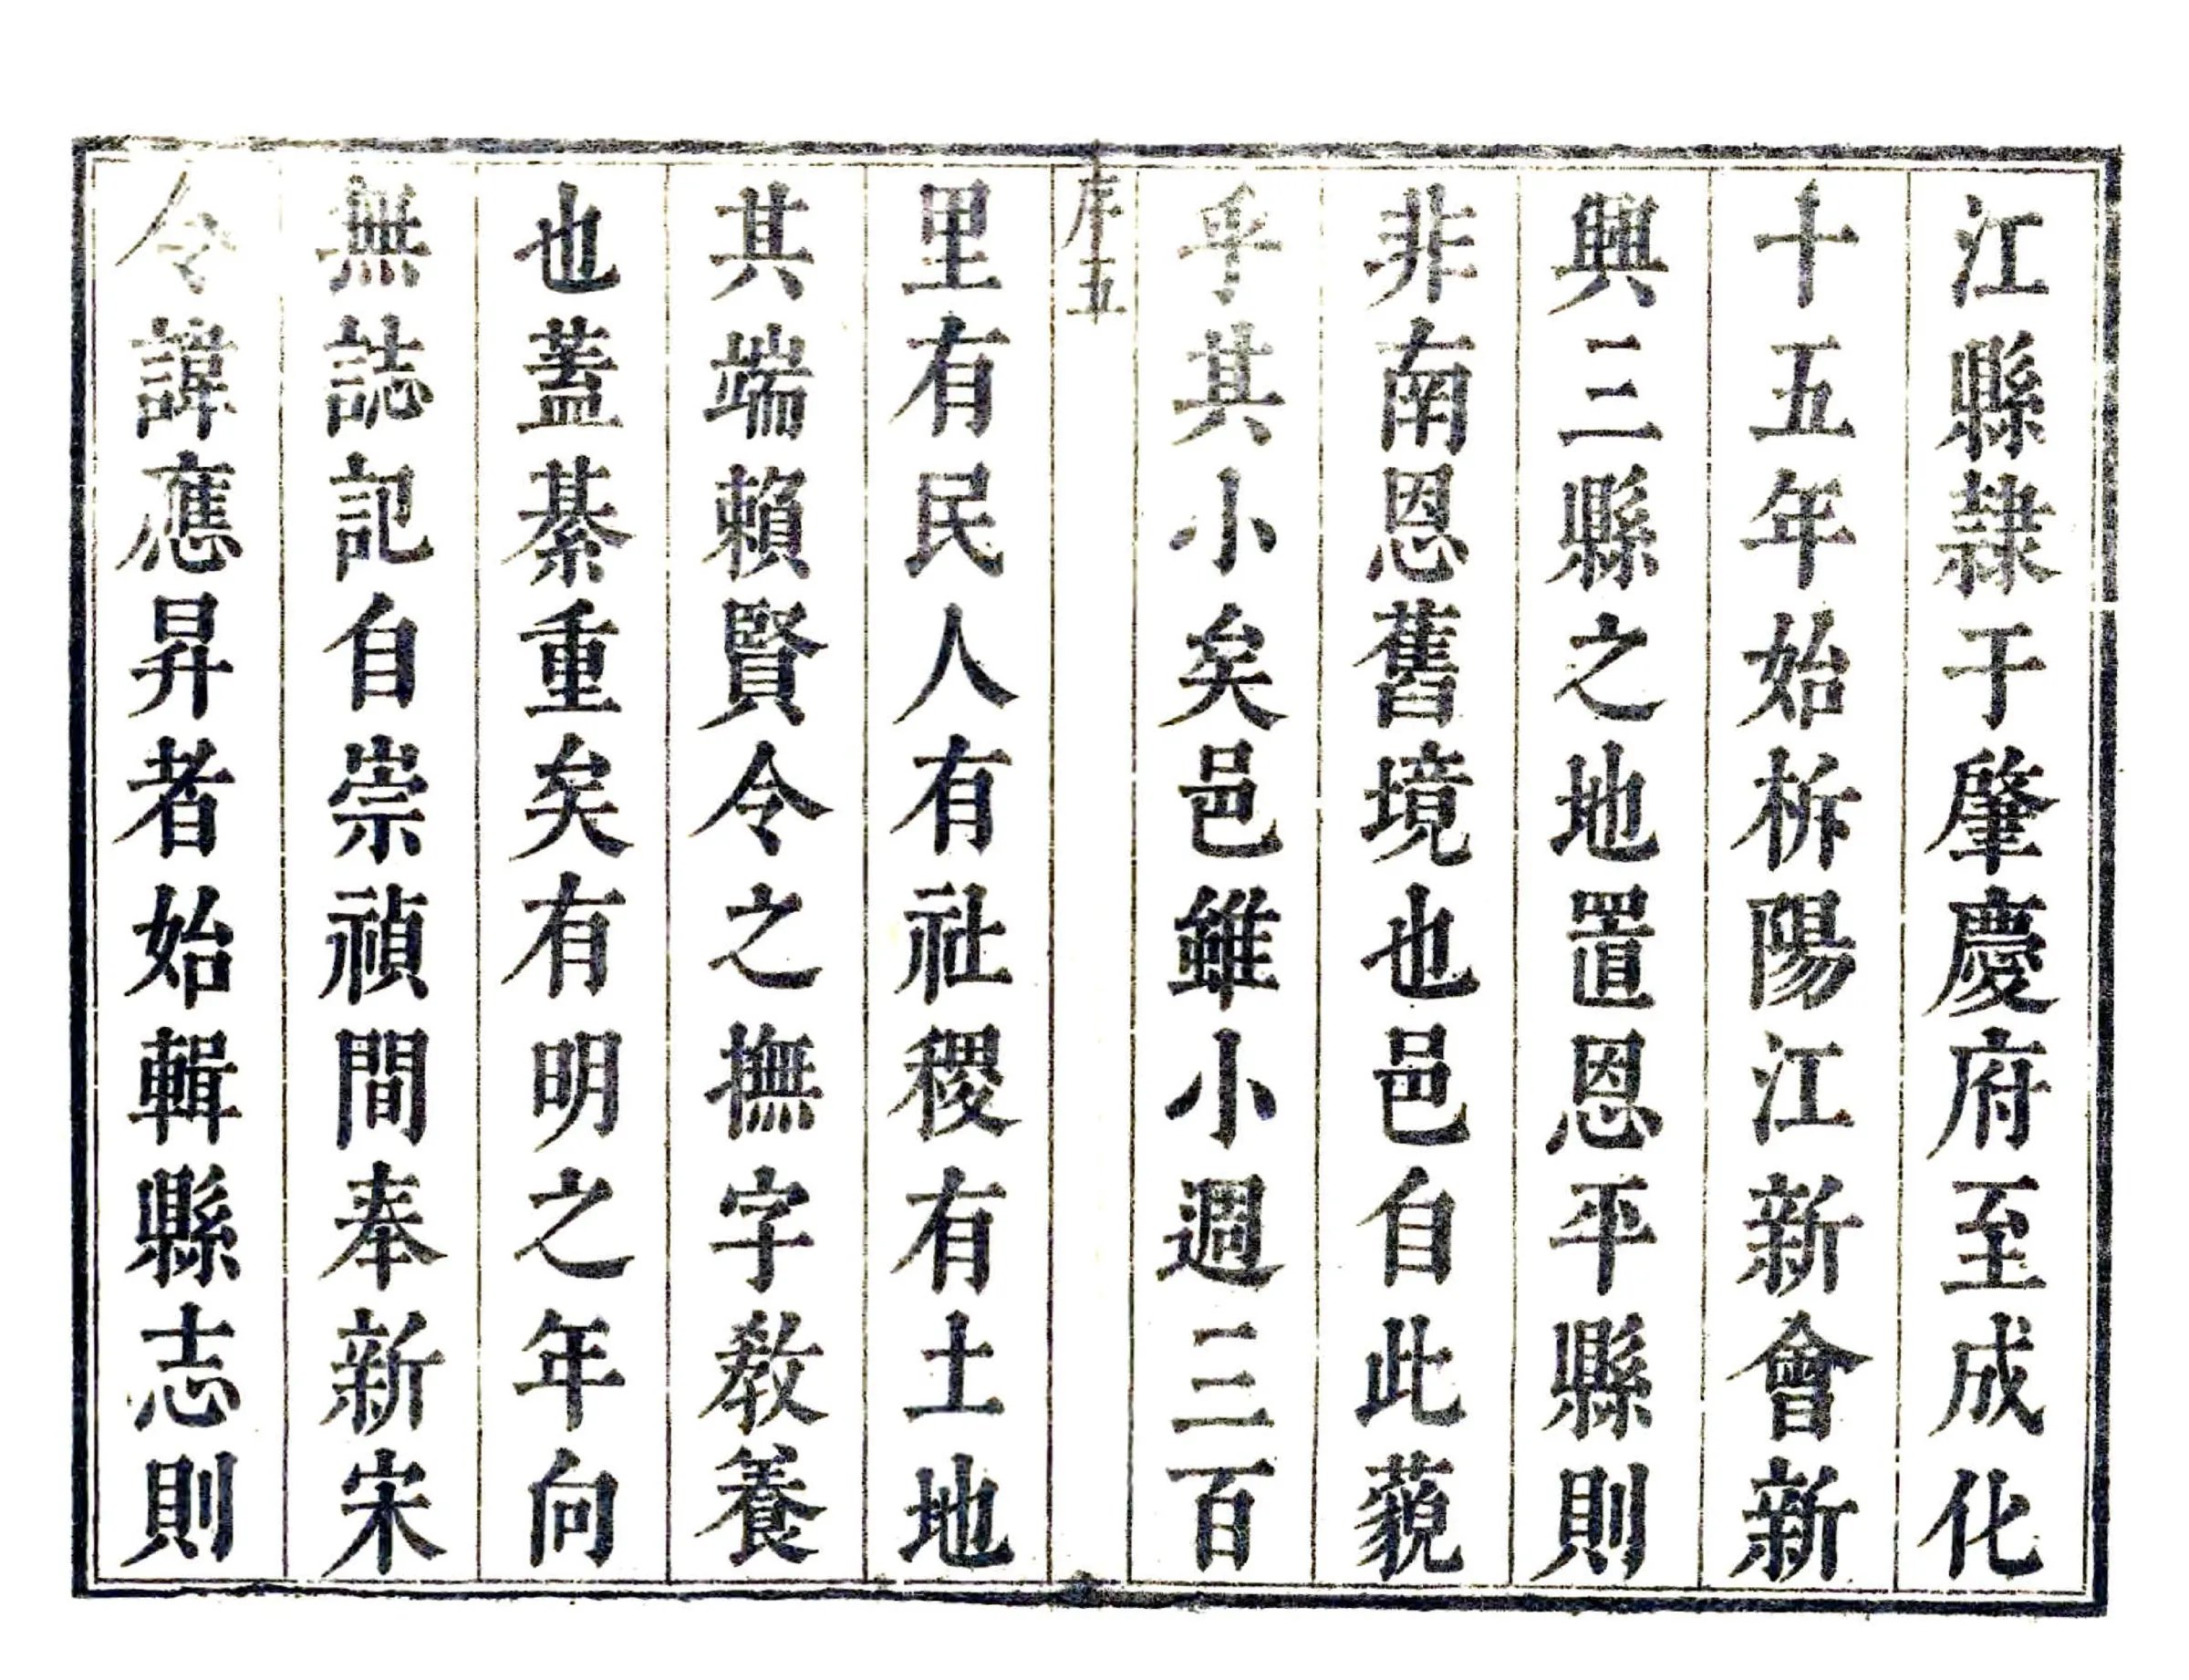 江縣隸于肇慶府至成化
十五年始柝陽江新會新
興三縣之地置恩平縣則
非南恩舊境也邑自此藐
乎其小矣邑雖小週三百
序五
里有民人有社稷有土地
其端賴賢令之撫字教養
也蓋綦重矣有明之年向
無誌記自崇禎間奉新宋
令諱應昇者始輯縣志則